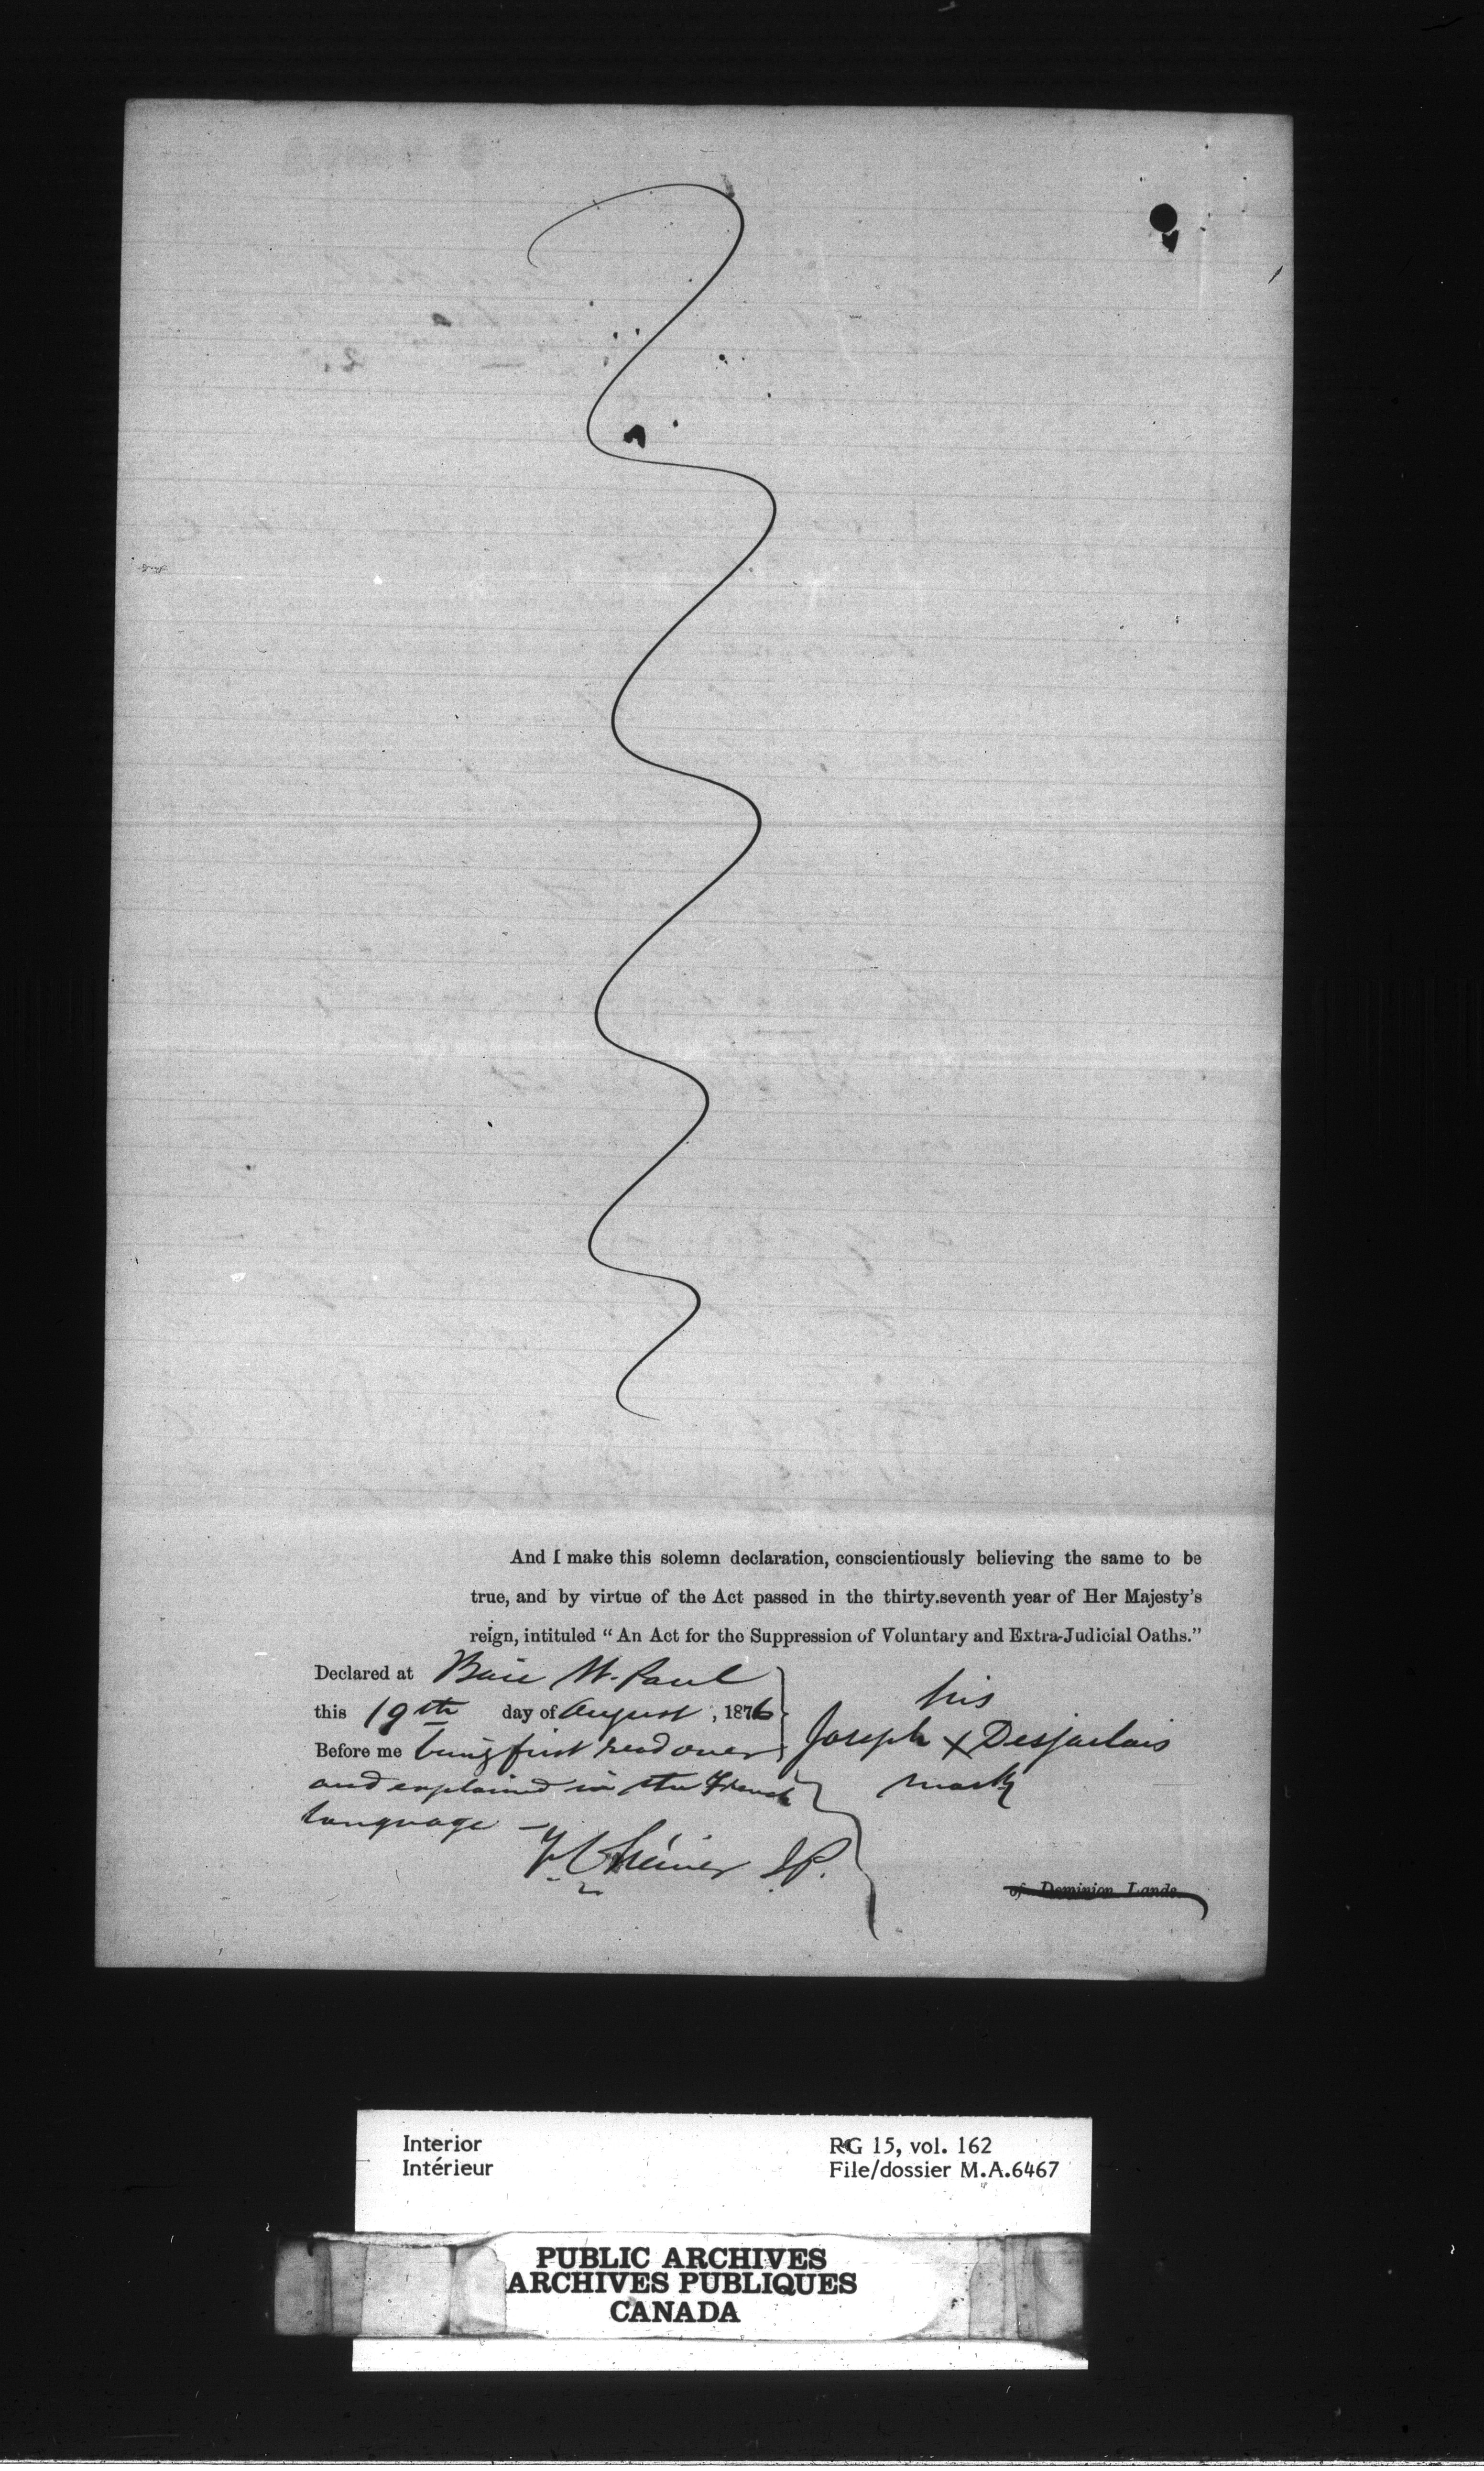 And I make this solemn declaration, conscientiously believing the same to be
true, and by virtue of the Act passed in the thirty.seventh year of Her Majesty's
reign, intituled "An Act for the Suppression of Voluntary and Extra-Judicial Oaths."
Declared at Baie St. Paul
this 19th day of August, 1876
Before me being first read over
and explained in the French
language —
his
Joseph X Desjarlais
mark
J.P.
of Dominion Lands.
Interior
Intérieur
RG 15, vol. 162
File/dossier M.A.6467
PUBLIC ARCHIVES
ARCHIVES PUBLIQUES
CANADA